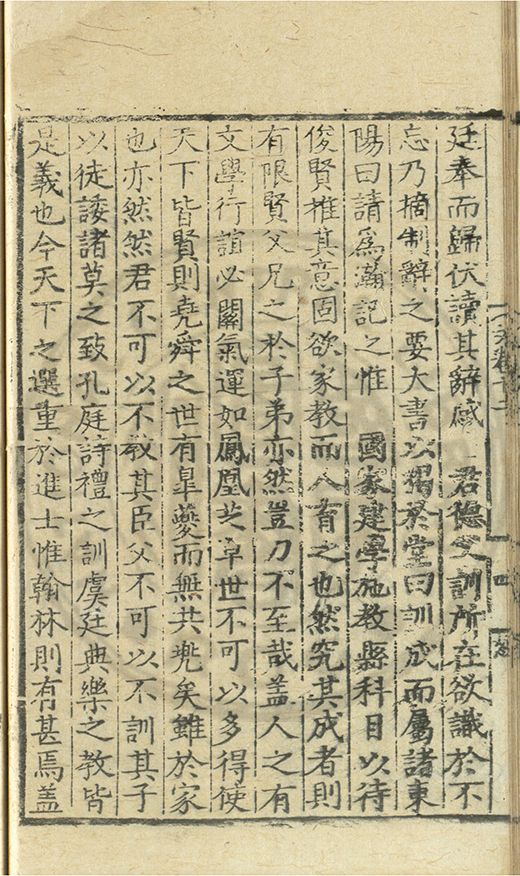 廷奉而歸伏讀其辭感 君德父訓所在欲識於不
忘乃摘制辭之要大書以揭於堂曰訓成而屬諸東
陽曰請爲瀚記之惟 國家建學施教縣科目以待
俊賢推其意固欲家教而人育之也然究其成者則
有限賢父兄之於子弟亦然豈力不至哉盖人之有
文學行誼必關氣運如鳳凰芝草世不可以多得使
天下皆賢則堯舜之世有臯夔而無共兠矣雖於家
也亦然然君不可以不教其臣父不可以不訓其子
以徒諉諸莫之致孔庭詩禮之訓虞廷典樂之教皆
是義也今天下之選重於進士惟翰林則有甚焉盖